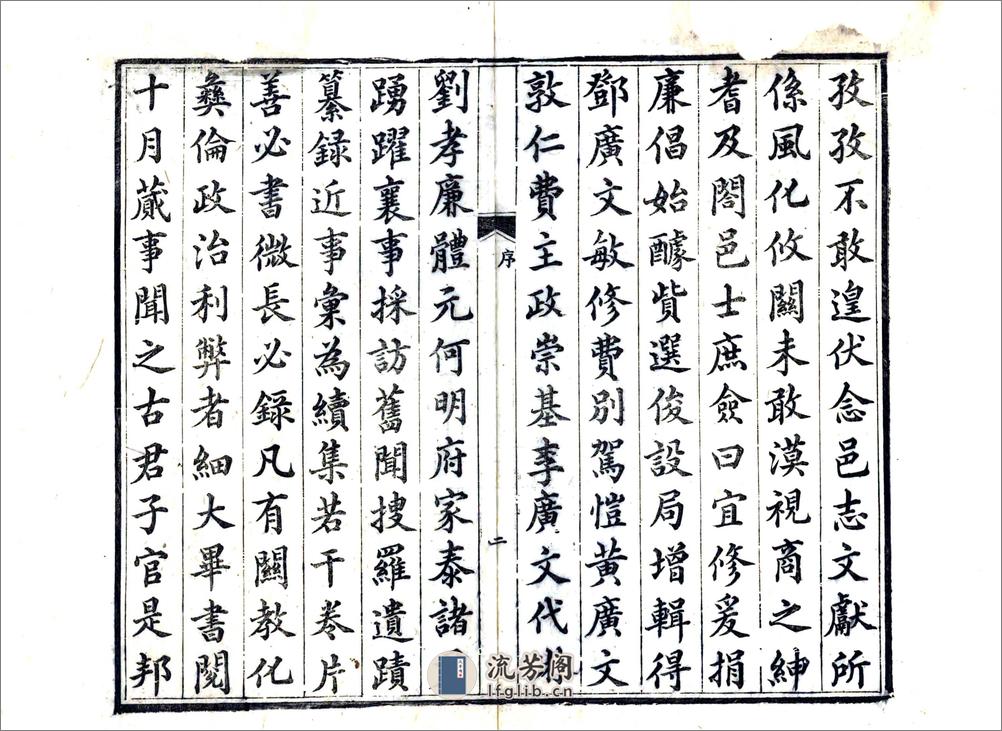 孜孜不敢遑伏念邑志文獻所
係風化攸關未敢漠視商之紳
耆及閤邑士庶僉曰宜修爰捐
廉倡始醵貲選俊設局增輯得
鄧廣文敏修費別駕愷黃廣文
敦仁費主政崇基李廣文代
序
二
劉孝廉體元何明府家泰諸
踴躍襄事採訪舊聞搜羅遺蹟
纂録近事彙為續集若干卷片
善必書微長必録凡有關教化
彝倫政治利弊者細大畢書閱
十月蕆事聞之古君子官是邦
流芳阁
lfglib.cn